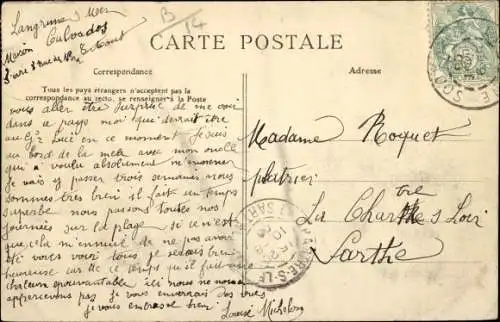 Langrune s Mer
Calvados
Maison
B
14
CARTE POSTALE
Correspondance
Adresse
Tous les pays étrangers n'acceptent pas la
correspondance au recto, se renseigner à la Poste
vous allez être surprise de me voir
dans ce pays moi qui devrait être
au Loir en ce moment Je suis
au bord de la mer avec mon oncle
qui a voulu absolument m'emmener
Je vais y passer trois semaines nous
sommes très bien il fait un temps
superbe nous passons toutes nos
journées sur la plage si ce n'est
que cela m'ennuie de ne pas avoir
été vous voir tous je serais bien
heureuse car de ce temps qu'il fait une
chaleur épouvantable ici nous ne nous
apercevons pas Je vous enverrais des vues
je vous embrasse bien Louise
Madame Roquet
platrier
La Chartre s Loir
Sarthe